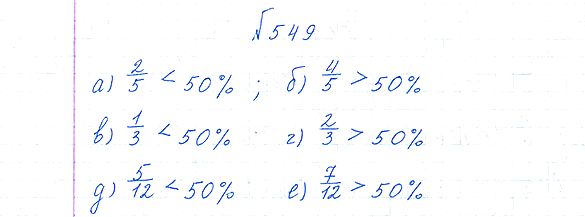 №549
а) 2/5 < 50% ; б) 4/5 > 50%
в) 1/3 < 50% г) 2/3 > 50%
д) 5/12 < 50% е) 7/12 > 50%